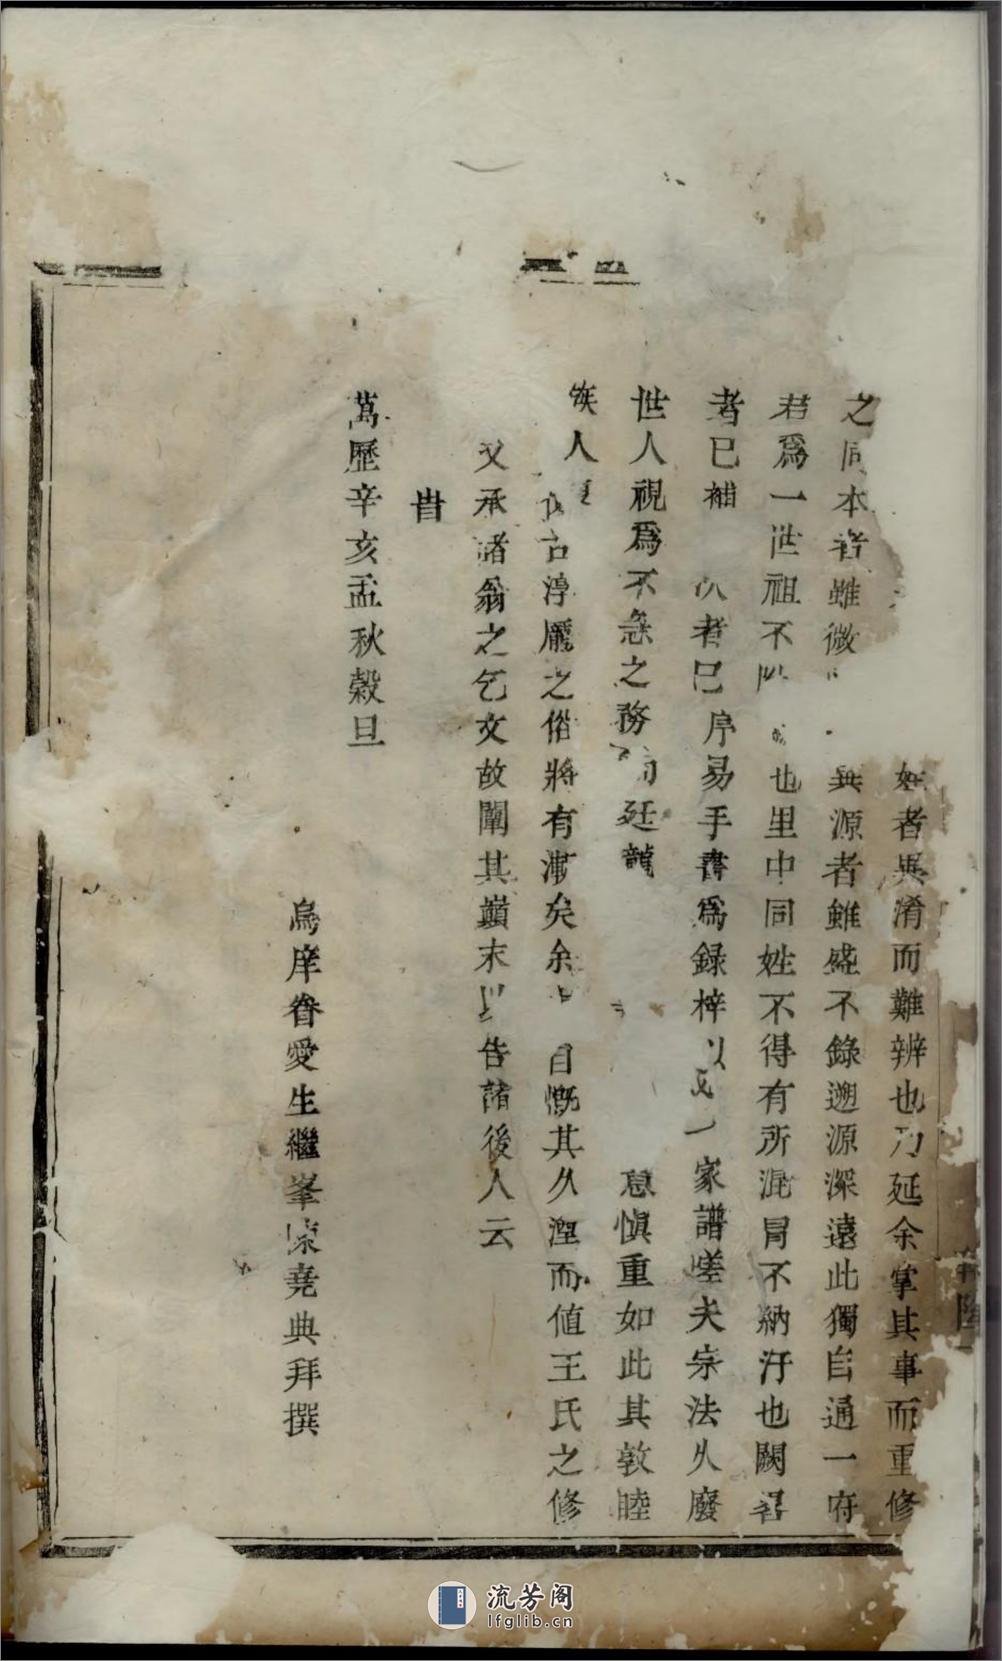 者異淆而難辨也乃延余掌其事而重修
之同本者雖微異源者雖盛不錄遡源深遠此獨自通一府
君為一世祖不也里中同姓不得有所混冒不納汙也闕者
者已補次者已序易手書為録梓以一家譜嗟夫宗法久廢
世人視為不急之務而廷龍息慎重如此其敦睦
族人古淳龐之俗將有漸矣余自慨其久湮而值王氏之修
又承諸翁之乞文故闡其巔末以告諸後人云
旹
萬歷辛亥孟秋穀旦
烏庠眷愛生繼峯宗堯典拜撰
流芳阁
lfglib.cn